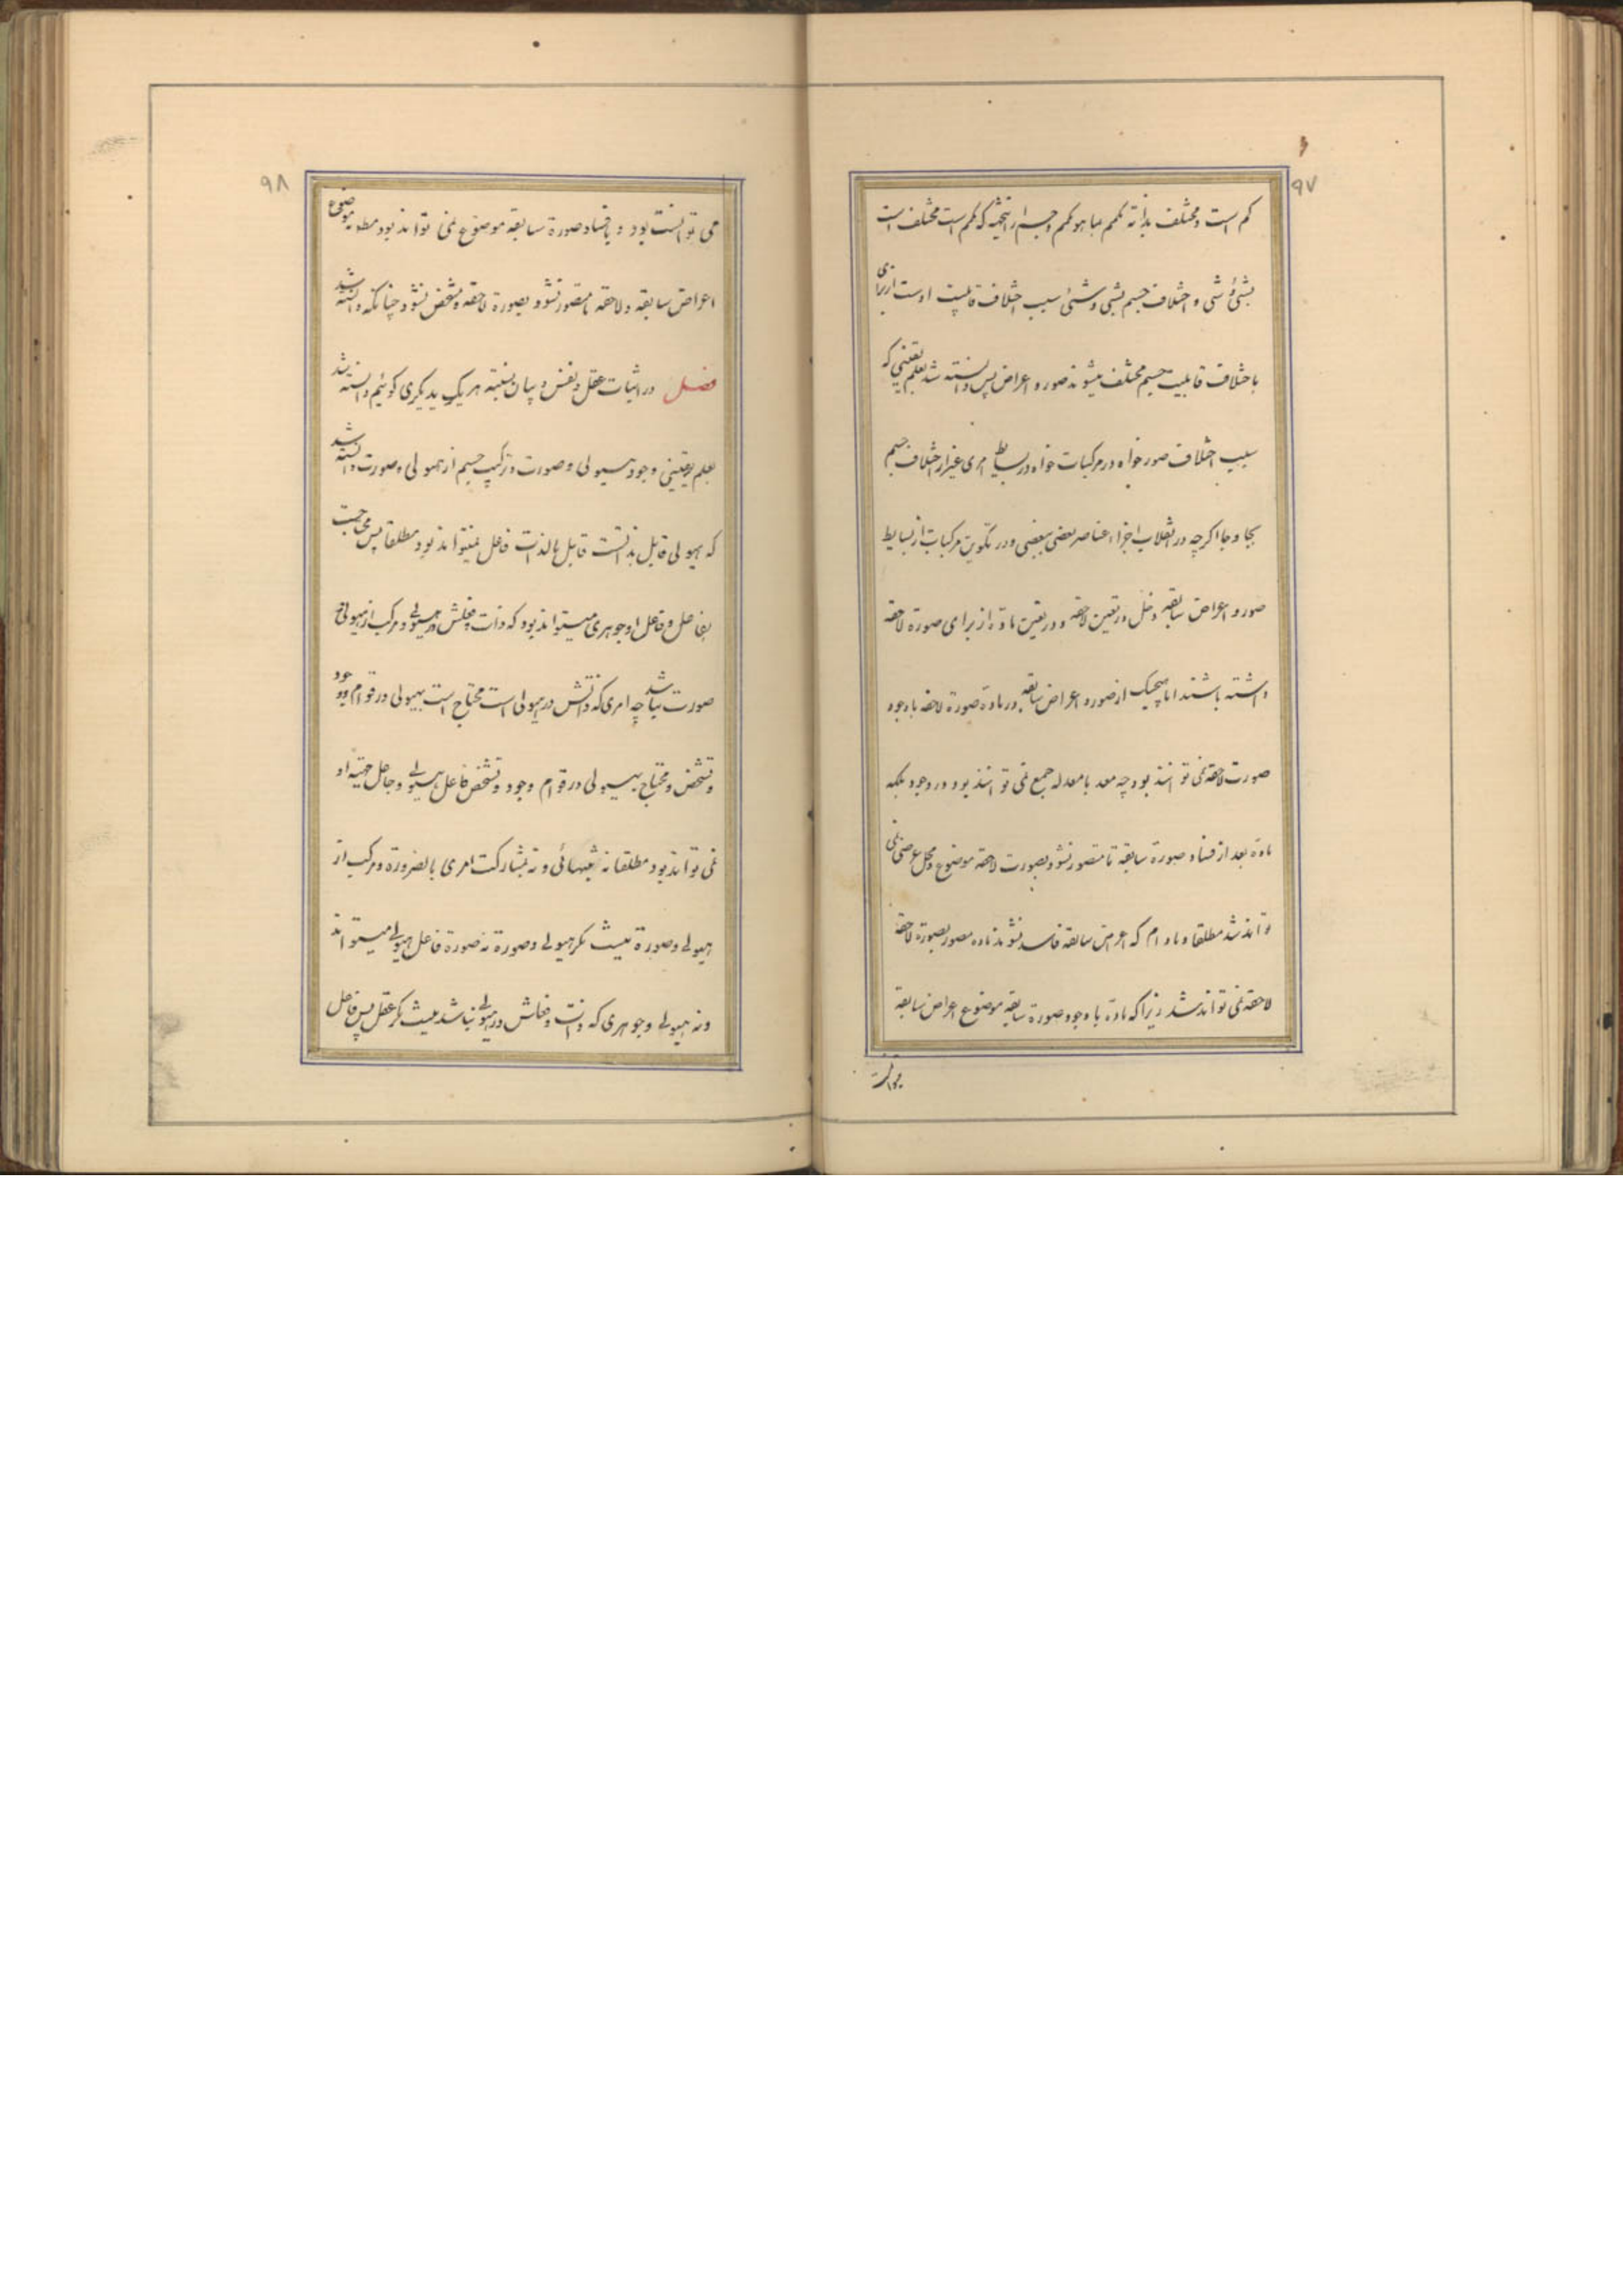 ۹۷
کم است و مختلف بذاته کمم بما هو کمم و جسم از اینحیثیه که کم است مختلف است
بشئ و شئ و اختلاف جسم بشئ و شئ سبب اختلاف قابلیت اوست از برای
باختلاف قابلیت جسم مختلف میشوند صور و اعراض پس دانسته شد بعلم یقینی که
سبب اختلاف صور خواه در مرکبات خواه در بسایط امری غیر از اختلاف جسم
بجا و جا اگرچه در انقلاب اجزاء عناصر بعضی ببعضی و در تکوین مرکبات از بسایط
صور و اعراض سابقه دخل در تعین لاحقه و در تعین ماده از برای صورة لاحقه
داشته باشند اما هیچیک از صور و اعراض سابقه در ماده صورة لاحقه با وجود
صورت لاحقه نمی توانند بود چه معد با معدله جمع نمی توانند بود در وجود بلکه
ماده بعد از فساد صورة سابقه تا متصور نشود بصورت لاحقه موضوع و محل عرضی نمی
تواند شد مطلقا و مادام که اعراض سابقه فاسد نشوند ماده مصور بصورة لاحقه
لاحقه نمی تواند شد زیرا که ماده با وجود صورة سابقه موضوع اعراض سابقه
۹۸
می توانست بود و با فساد صورة سابقه موضوع نمی تواند بود مطلقا موضوع
اعراض سابقه و لاحقه تا متصور نشود بصورة لاحقه و مشخص نشود چنانکه دانسته شد
فصل در اثبات عقل و نفس و بیان نسبته هر یک بدیگری گوئیم دانسته شد
بعلم یقینی وجود هیولی و صورت و ترکیب جسم از هیولی و صورت و دانسته شد
که هیولی قابل بذاتست قابل بالذات فاعل نمیتواند بود مطلقا پس محتاجست
بفاعل و فاعل او جوهری میتواند بود که ذات و فعلش در هیولی و مرکب از هیولی و
صورت نباشد چه امری که ذاتش در هیولی است محتاج است بهیولی در قوام وجود
و تشخص و محتاج بهیولی در قوام وجود و تشخص فاعل هیولی و جاعل حقیقة او
نمی تواند بود مطلقا نه بتنهائی و نه بمشارکت امری بالضرورة و مرکب از
هیولی و صورة نیست مگر هیولی و صورة نه صورة فاعل هیولی میتواند
و نه هیولی و جوهری که ذات و فعلش در هیولی نباشد نیست مگر عقل پس فاعل